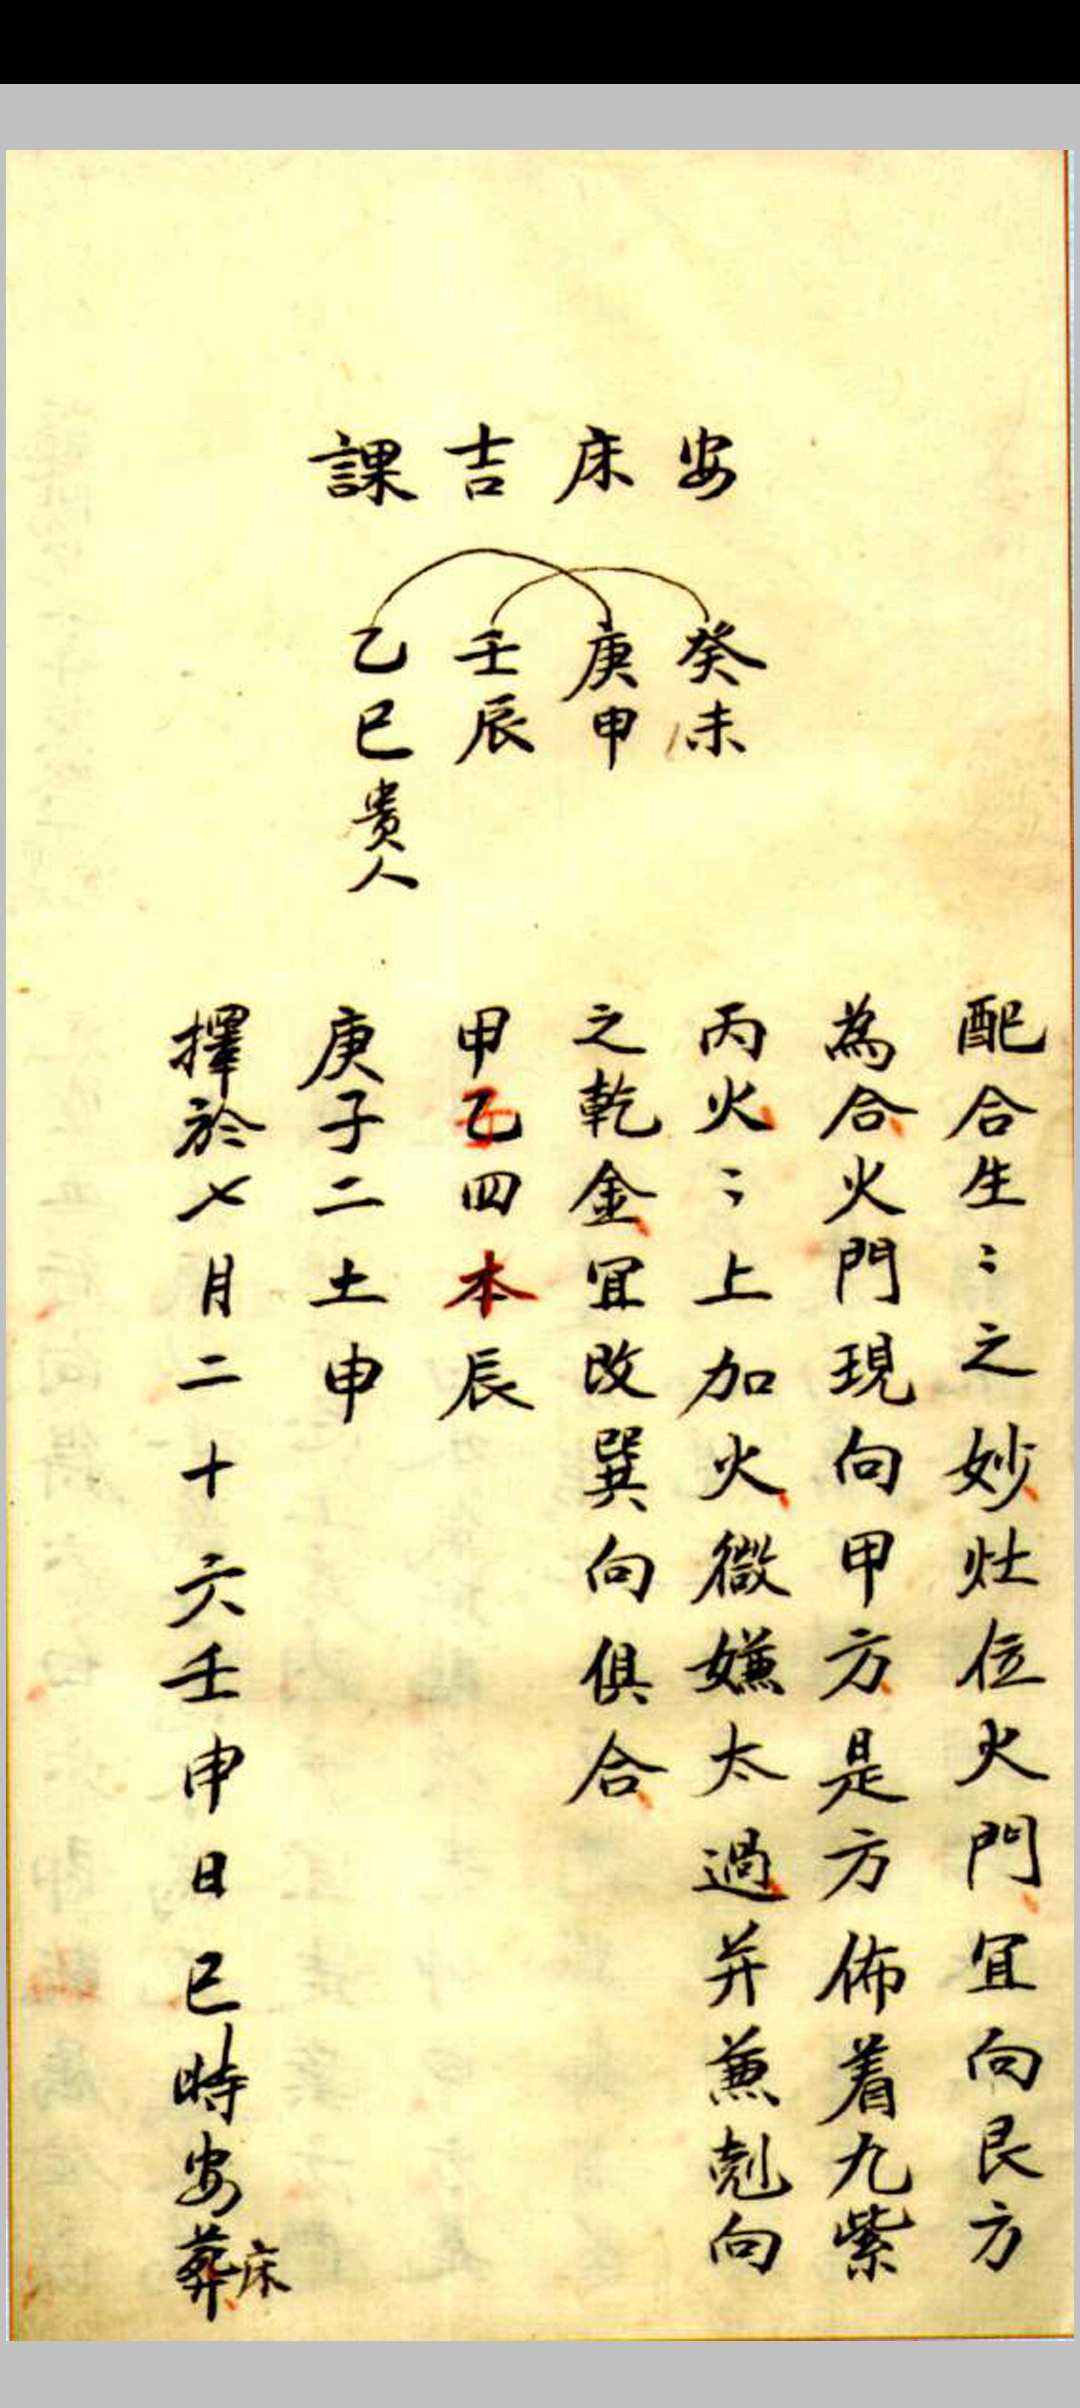 安床吉課
癸未
庚申
壬辰
乙巳貴人
配合生〻之妙灶位火門宜向艮方
為合火門現向甲方是方佈着九紫
丙火〻上加火微嫌太過并兼剋向
之乾金宜改巽向俱合
甲乙四本辰
庚子二土申
擇於七月二十六壬申日巳時安葬床